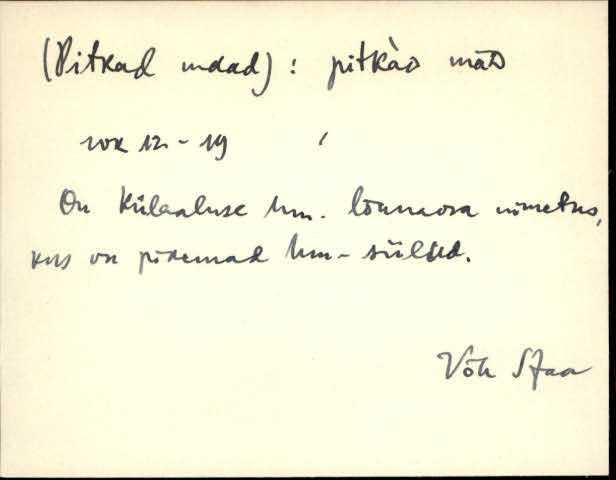 (Pitkad maad) : pitkàD māD
vok 12-19
On Külaaluse hm. lõunaosa nimetus,
kus on pikemad hm-siilud.
Võn Staa